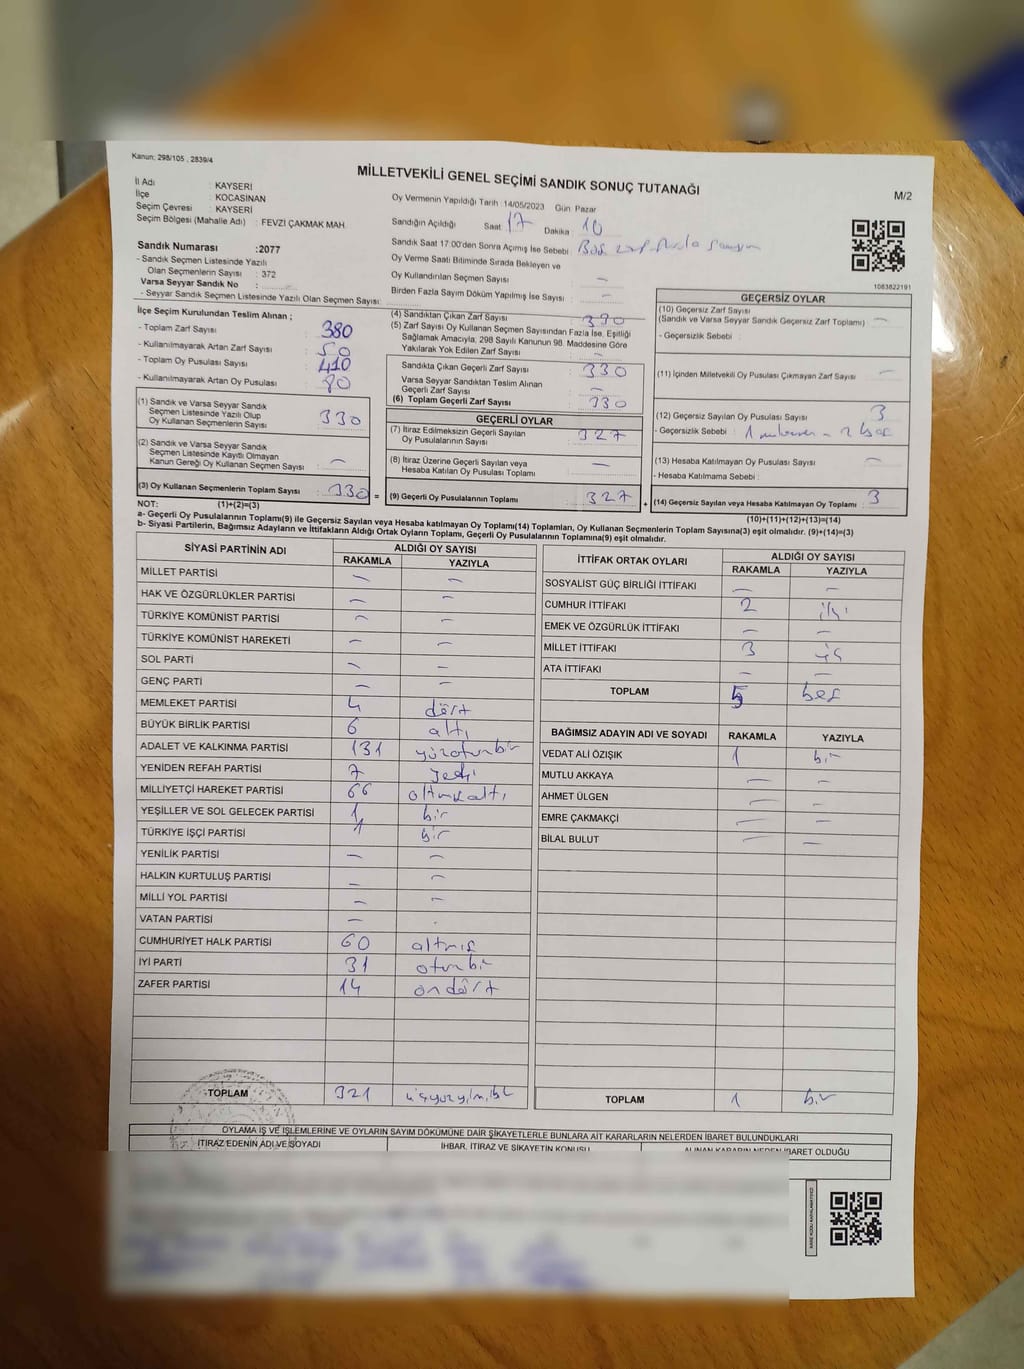 Kanun: 298/105 , 2839/4
MİLLETVEKİLİ GENEL SEÇİMİ SANDIK SONUÇ TUTANAĞI
M/2
İl Adı : KAYSERİ
İlçe : KOCASİNAN
Seçim Çevresi : KAYSERİ
Seçim Bölgesi (Mahalle Adı) : FEVZİ ÇAKMAK MAH.
Oy Vermenin Yapıldığı Tarih :14/05/2023 Gün Pazar
Sandığın Açıldığı Saat 17 Dakika 10
Sandık Saat 17:00'den Sonra Açımış İse Sebebi : Boş zarf
Oy Verme Saati Bitiminde Sırada Bekleyen ve
Oy Kullandırılan Seçmen Sayısı : –
Birden Fazla Sayım Döküm Yapılmış İse Sayısı : –
1083822191
Sandık Numarası :2077
- Sandık Seçmen Listesinde Yazılı
Olan Seçmenlerin Sayısı : 372
Varsa Seyyar Sandık No :
- Seyyar Sandık Seçmen Listesinde Yazılı Olan Seçmen Sayısı:
İlçe Seçim Kurulundan Teslim Alınan ;
- Toplam Zarf Sayısı : 380
- Kullanılmayarak Artan Zarf Sayısı : 50
- Toplam Oy Pusulası Sayısı : 410
- Kullanılmayarak Artan Oy Pusulası : 80
(1) Sandık ve Varsa Seyyar Sandık
Seçmen Listesinde Yazılı Olup
Oy Kullanan Seçmenlerin Sayısı : 330
(2) Sandık ve Varsa Seyyar Sandık
Seçmen Listesinde Kayıtlı Olmayan
Kanun Gereği Oy Kullanan Seçmen Sayısı : –
(3) Oy Kullanan Seçmenlerin Toplam Sayısı : 330 =
(1)+(2)=(3)
(4) Sandıktan Çıkan Zarf Sayısı : 330
(5) Zarf Sayısı Oy Kullanan Seçmen Sayısından Fazla İse, Eşitliği
Sağlamak Amacıyla; 298 Sayılı Kanunun 98. Maddesine Göre
Yakılarak Yok Edilen Zarf Sayısı : –
Sandıkta Çıkan Geçerli Zarf Sayısı : 330
Varsa Seyyar Sandıktan Teslim Alınan
Geçerli Zarf Sayısı : –
(6) Toplam Geçerli Zarf Sayısı : 330
GEÇERLİ OYLAR
(7) İtiraz Edilmeksizin Geçerli Sayılan
Oy Pusulalarının Sayısı : 327
(8) İtiraz Üzerine Geçerli Sayılan veya
Hesaba Katılan Oy Pusulası Toplamı : –
(9) Geçerli Oy Pusulalarının Toplamı : 327 +
GEÇERSİZ OYLAR
(10) Geçersiz Zarf Sayısı
(Sandık ve Varsa Seyyar Sandık Geçersiz Zarf Toplamı) : –
- Geçersizlik Sebebi :
(11) İçinden Milletvekili Oy Pusulası Çıkmayan Zarf Sayısı : –
(12) Geçersiz Sayılan Oy Pusulası Sayısı : 3
- Geçersizlik Sebebi : 1 - 2 boş
(13) Hesaba Katılmayan Oy Pusulası Sayısı : –
- Hesaba Katılmama Sebebi :
(14) Geçersiz Sayılan veya Hesaba Katılmayan Oy Toplamı : 3
(10)+(11)+(12)+(13)=(14)
NOT:
a- Geçerli Oy Pusulalarının Toplamı(9) ile Geçersiz Sayılan veya Hesaba katılmayan Oy Toplamı(14) Toplamları, Oy Kullanan Seçmenlerin Toplam Sayısına(3) eşit olmalıdır. (9)+(14)=(3)
b- Siyasi Partilerin, Bağımsız Adayların ve İttifakların Aldığı Ortak Oyların Toplamı, Geçerli Oy Pusulalarının Toplamına(9) eşit olmalıdır.
SİYASİ PARTİNİN ADI ALDIĞI OY SAYISI
RAKAMLA YAZIYLA
MİLLET PARTİSİ – –
HAK VE ÖZGÜRLÜKLER PARTİSİ – –
TÜRKİYE KOMÜNİST PARTİSİ – –
TÜRKİYE KOMÜNİST HAREKETİ – –
SOL PARTİ – –
GENÇ PARTİ – –
MEMLEKET PARTİSİ 4 dört
BÜYÜK BİRLİK PARTİSİ 6 altı
ADALET VE KALKINMA PARTİSİ 131 yüzotuzbir
YENİDEN REFAH PARTİSİ 7 yedi
MİLLİYETÇİ HAREKET PARTİSİ 66 altmışaltı
YEŞİLLER VE SOL GELECEK PARTİSİ 1 bir
TÜRKİYE İŞÇİ PARTİSİ 1 bir
YENİLİK PARTİSİ – –
HALKIN KURTULUŞ PARTİSİ – –
MİLLİ YOL PARTİSİ – –
VATAN PARTİSİ –
CUMHURİYET HALK PARTİSİ 60 altmış
İYİ PARTİ 31 otuzbir
ZAFER PARTİSİ 14 ondört
TOPLAM 321 üçyüzyirmibir
İTTİFAK ORTAK OYLARI ALDIĞI OY SAYISI
RAKAMLA YAZIYLA
SOSYALİST GÜÇ BİRLİĞİ İTTİFAKI – –
CUMHUR İTTİFAKI 2 iki
EMEK VE ÖZGÜRLÜK İTTİFAKI – –
MİLLET İTTİFAKI 3 üç
ATA İTTİFAKI – –
TOPLAM 5 beş
BAĞIMSIZ ADAYIN ADI VE SOYADI RAKAMLA YAZIYLA
VEDAT ALİ ÖZIŞIK 1 bir
MUTLU AKKAYA – –
AHMET ÜLGEN – –
EMRE ÇAKMAKÇİ – –
BİLAL BULUT – –
TOPLAM 1 bir
OYLAMA İŞ VE İŞLEMLERİNE VE OYLARIN SAYIM DÖKÜMÜNE DAİR ŞİKAYETLERLE BUNLARA AİT KARARLARIN NELERDEN İBARET BULUNDUKLARI
İTİRAZ EDENİN ADI VE SOYADI İHBAR, İTİRAZ VE ŞİKAYETİN KONUSU ALINAN KARARIN NEDEN İBARET OLDUĞU